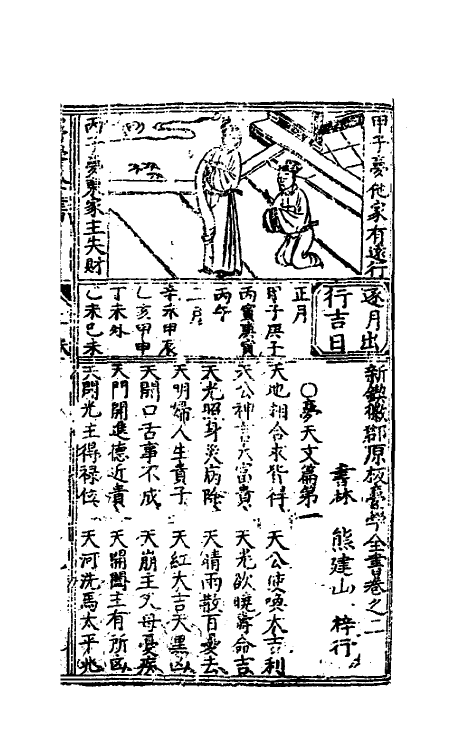 甲子夢他家有遠行
丙子夢東家主失財
逐月出
行吉日
正月
甲子庚子
丙寅庚寅
丙午
二月
辛未甲辰
乙亥甲申
丁未外
乙未己未
新鍥徽郡原板夢學全書卷之二
書林 熊建山 梓行
○夢天文篇第一
天地相合求皆得 天公使喚大吉利
天公神言大富貴 天光欲曉壽命吉
天光照身災病除 天晴雨散百憂去
天明婦人生貴子 天紅大吉天黑凶
天開口舌事不成 天崩主父母憂疾
天門開進德近貴 天開闔主有所凶
天門光主得祿位 天河洗馬太平兆